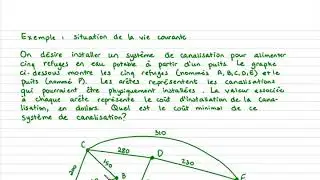 Exemple : situation de la vie courante
On désire installer un système de canalisation pour alimenter
cinq refuges en eau potable à partir d'un puits. Le graphe
ci-dessous montre les cinq refuges (nommés A,B,C,D,E) et le
puits (nommé P). Les arêtes représentent les canalisations
qui pourraient être physiquement installées. La valeur associée
à chaque arête représente le coût d'installation de la cana-
lisation, en dollars. Quel est le coût minimal de ce
système de canalisation?
310
C
280
D
230
E
140
B